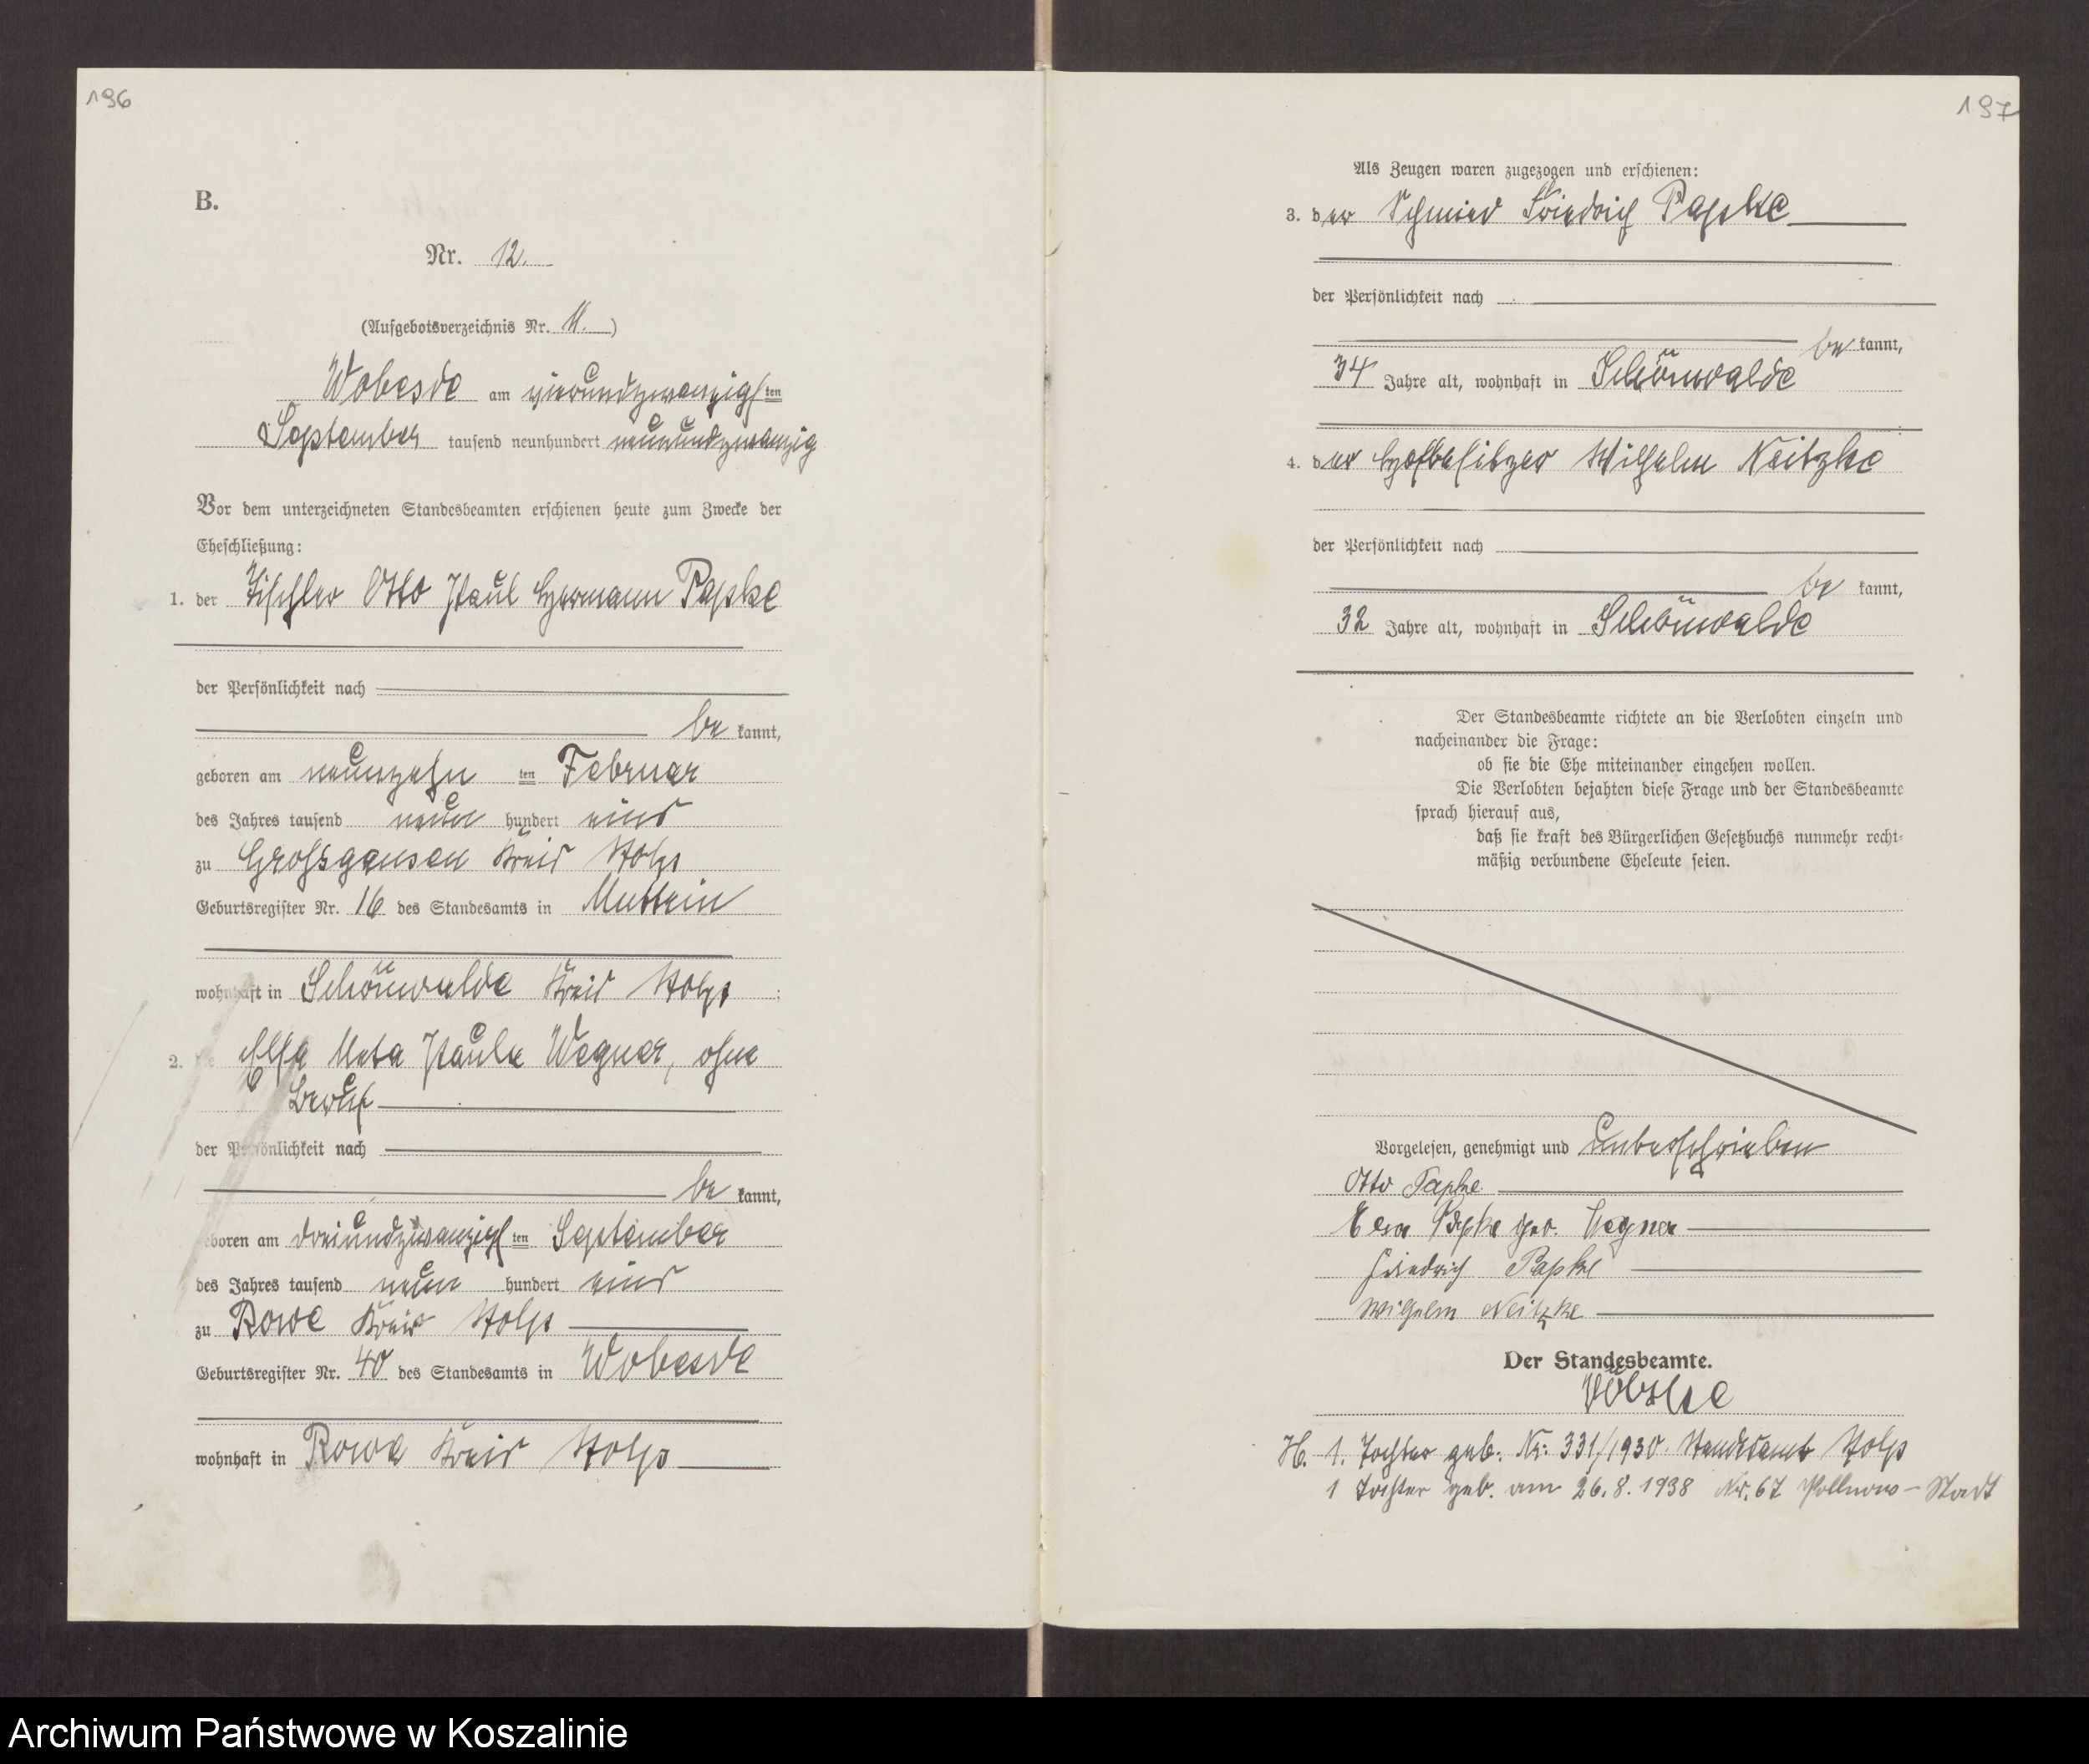 196
B.
Nr. 12.
(Aufgebotsverzeichnis Nr. 11.)
Wobesde am vierundzwanzigsten
September tausend neunhundert neunundzwanzig
Vor dem unterzeichneten Standesbeamten erschienen heute zum Zwecke der
Eheschließung:
1. der Tischler Otto Paul Hermann Papke
der Persönlichkeit nach
be kannt,
geboren am neunzehn ten Februar
des Jahres tausend neun hundert eins
zu Grossgansen Kreis Stolp
Geburtsregister Nr. 16 des Standesamts in Muttrin
wohnhaft in Schönwalde Kreis Stolp :
2. Elsa Meta Paula Wegner, ohne
Beruf
der Persönlichkeit nach
be kannt,
geboren am dreiundzwanzigsten September
des Jahres tausend neun hundert eins
zu Rowe Kreis Stolp
Geburtsregister Nr. 40 des Standesamts in Wobesde
wohnhaft in Rowe Kreis Stolp
197
Als Zeugen waren zugezogen und erschienen:
3. der Schmied Friedrich Papke
der Persönlichkeit nach
be kannt,
34 Jahre alt, wohnhaft in Schönwalde
4. der Hofbesitzer Wilhelm Neitzke
der Persönlichkeit nach
be kannt,
32 Jahre alt, wohnhaft in Schönwalde
Der Standesbeamte richtete an die Verlobten einzeln und
nacheinander die Frage:
ob sie die Ehe miteinander eingehen wollen.
Die Verlobten bejahten diese Frage und der Standesbeamte
sprach hierauf aus,
daß sie kraft des Bürgerlichen Gesetzbuchs nunmehr recht-
mäßig verbundene Eheleute seien.
Vorgelesen, genehmigt und unterschrieben
Otto Papke
Elsa Papke geb. Wegner
Friedrich Papke
Wilhelm Neitzke
Der Standesbeamte.
H. 1. Tochter geb. Nr: 331/1930 Standesamt Stolp
1 Tochter geb. am 26.8.1938 Nr. 67 Pollnow - Stadt
Archiwum Państwowe w Koszalinie